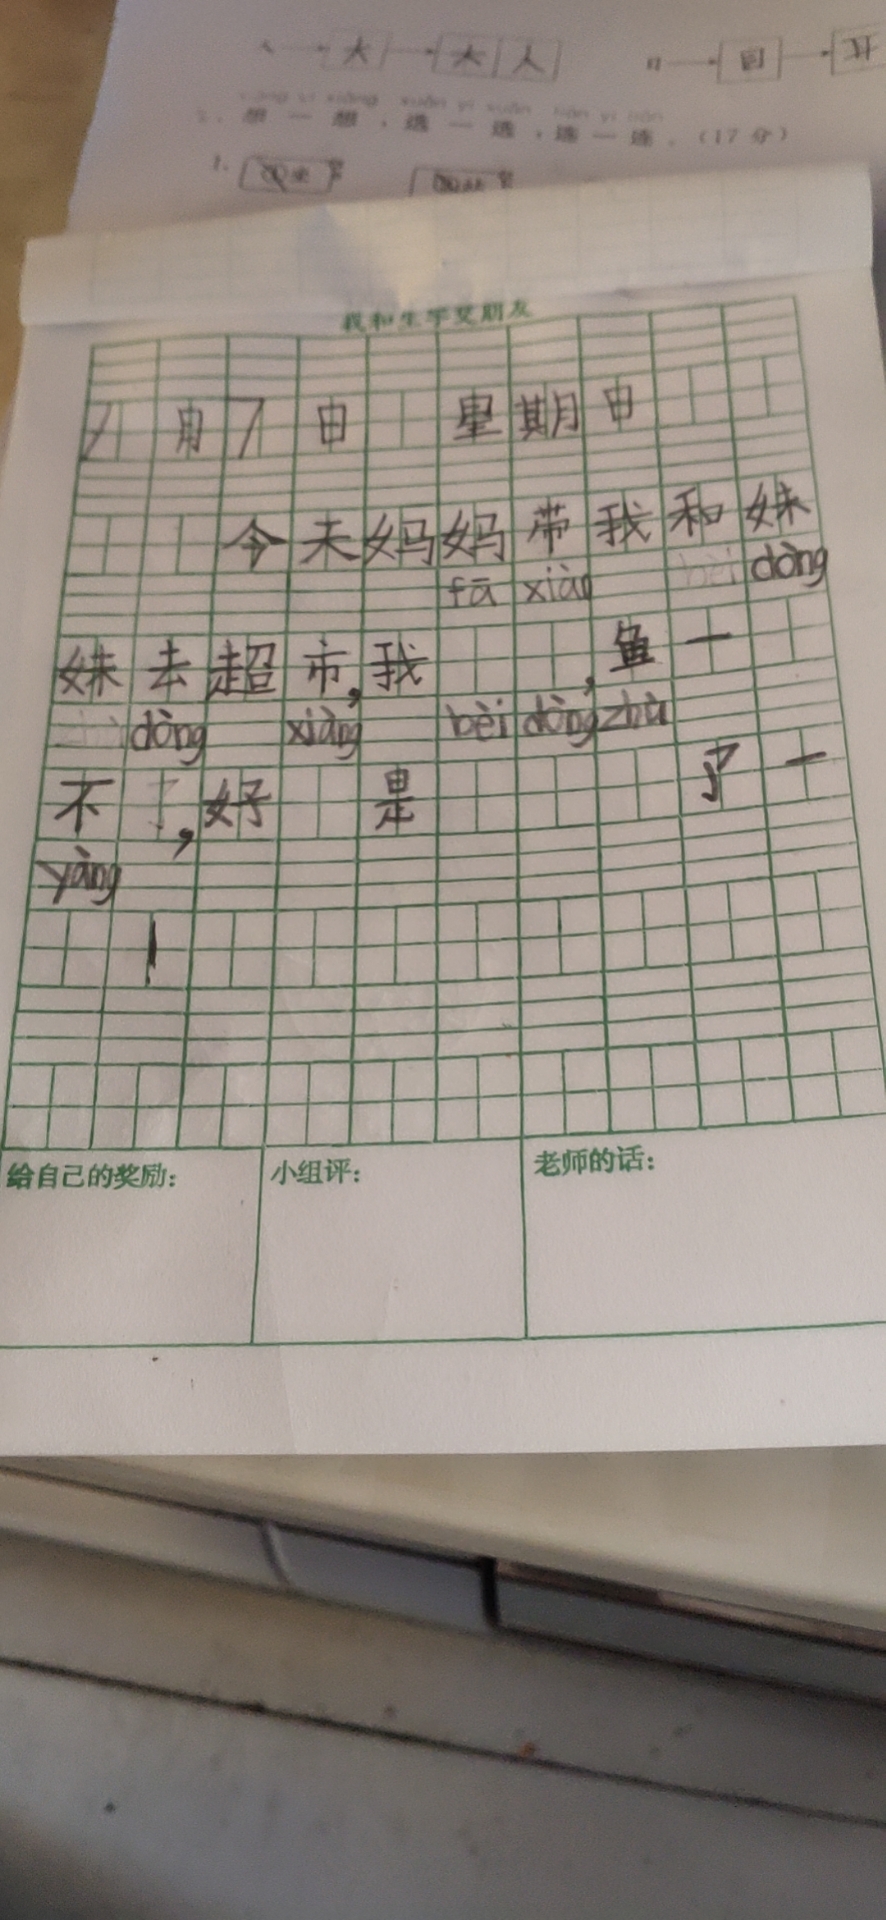 大 大人
2. 想一想，选一选，连一连。（17分）
1.
我和生字交朋友
1月7日 星期日
今天妈妈带我和妹
fā xiàn bèi dòng
妹去超市，我 ，鱼一
dòng xiàng bèi dòng zhù
不了，好 是 了一
yàng
！
给自己的奖励：
小组评：
老师的话：